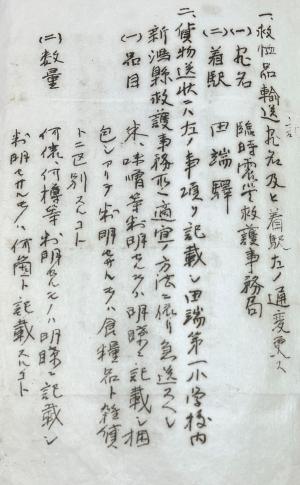 一、救恤品輸送宛名及ビ着駅左ノ通変更ス
(一)宛名 臨時震災救護事務局
(二)着駅 田端驛
二、貨物送状ニハ左ノ事項ヲ記載シ田端第一小学校内
新潟縣救護事務所ニ適宜ノ方法ニ依リ急送スベシ
(一)品目 米、味噌等判明セルモノハ明瞭ニ記載シ梱
包シアリテ判明セザルモノハ食糧品ト雑貨
トニ区別スルコト
(二)数量 何俵、何樽等判明セルモノハ明瞭ニ記載シ
判明セザルモノハ何箇ト記載スルコト